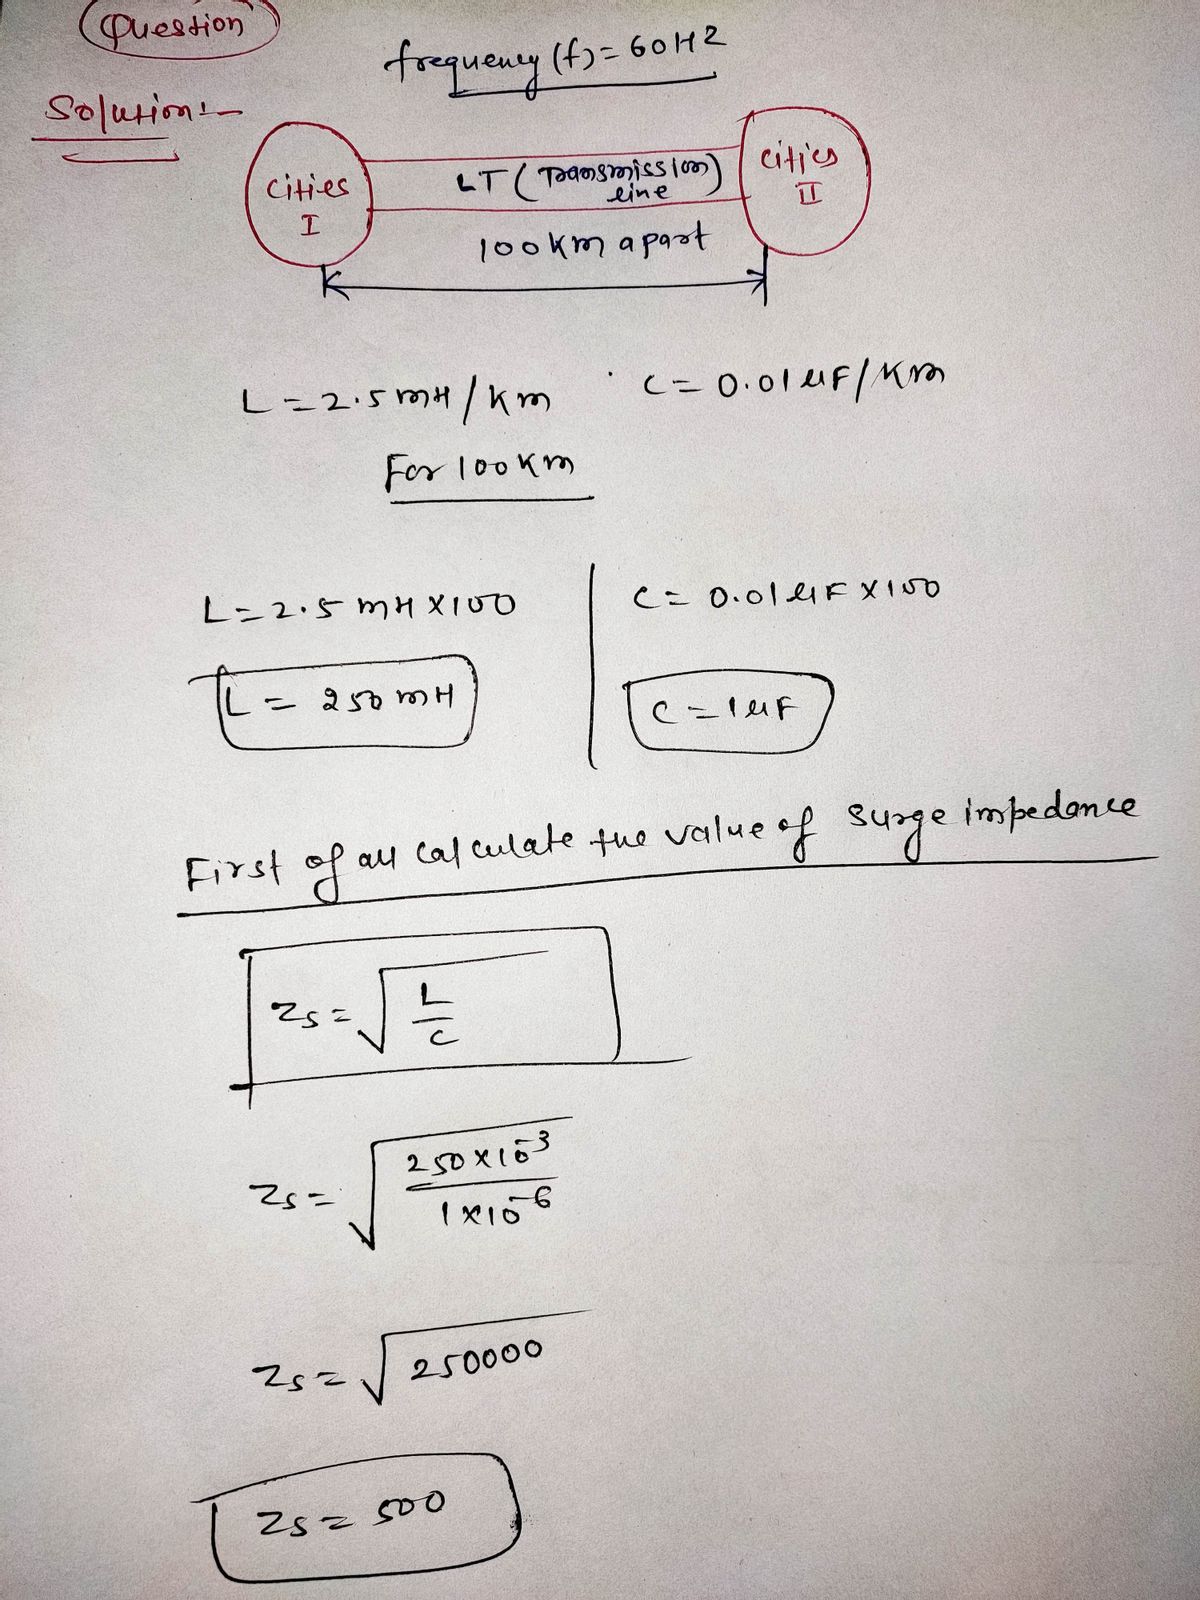 Question
frequency (f) = 60HZ
Solution:-
Cities
I
LT ( Transmission )
line
Cities
II
100 km apart
L = 2.5 mH / km
C = 0.01 μF / Km
For 100 km
L = 2.5 mH X100
C = 0.01 μF X100
L = 250 mH
C = 1 μF
First of all calculate the value of surge impedance
Zs = √ L/C
Zs = √ 250 × 10⁻³ / 1 × 10⁻⁶
Zs = √ 250000
Zs = 500